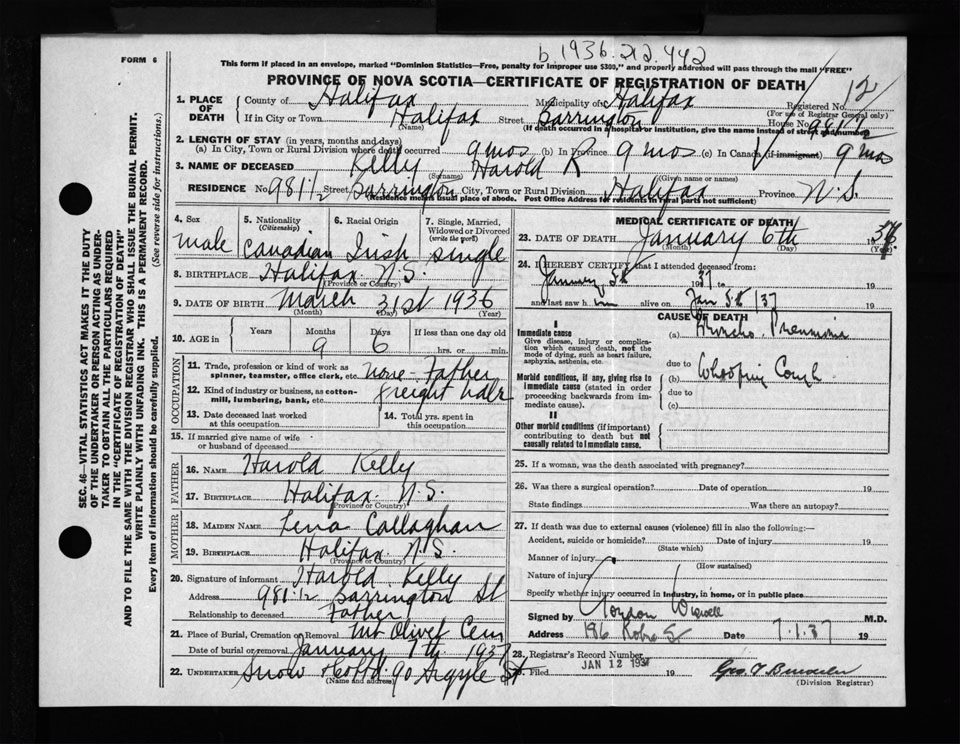 FORM 6
b 1936. 212.442
This form if placed in an envelope, marked "Dominion Statistics—Free, penalty for improper use $300," and properly addressed will pass through the mail "FREE"
PROVINCE OF NOVA SCOTIA—CERTIFICATE OF REGISTRATION OF DEATH
1. PLACE OF DEATH
County of Halifax Municipality of Halifax Registered No. 12
(For use of Registrar General only)
If in City or Town Halifax Street Barrington House No. 981 1/2
(Name) (If death occurred in a hospital or institution, give the name instead of street and number)
2. LENGTH OF STAY (in years, months and days)
(a) In City, Town or Rural Division where death occurred 9 mos (b) In Province 9 mos (c) In Canada (if immigrant) 9 mos
3. NAME OF DECEASED Kelly Harold R
(Surname) (Given name or names)
RESIDENCE No. 981 1/2 Street Barrington City, Town or Rural Division Halifax Province N.S.
(Residence means usual place of abode. Post Office Address for residents in rural parts not sufficient)
4. Sex male
5. Nationality (Citizenship) Canadian
6. Racial Origin Irish
7. Single, Married, Widowed or Divorced (write the word) single
8. BIRTHPLACE Halifax N.S.
(Province or Country)
9. DATE OF BIRTH March 31st 1936
(Month) (Day) (Year)
10. AGE in Years Months Days If less than one day old
9 6 hrs. or min.
OCCUPATION
11. Trade, profession or kind of work as spinner, teamster, office clerk, etc. none - Father
12. Kind of industry or business, as cotton-mill, lumbering, bank, etc. freight
13. Date deceased last worked at this occupation
14. Total yrs. spent in this occupation
15. If married give name of wife or husband of deceased
FATHER
16. NAME Harold Kelly
17. BIRTHPLACE Halifax N.S.
(Province or Country)
MOTHER
18. MAIDEN NAME Lena Callaghan
19. BIRTHPLACE Halifax N.S.
(Province or Country)
20. Signature of informant Harold Kelly
Address 981 1/2 Barrington St
Relationship to deceased Father
21. Place of Burial, Cremation or Removal Mt Olivet Cem
Date of burial or removal January 7th. 1937
22. UNDERTAKER Snow 90 Argyle St
(Name and address)
MEDICAL CERTIFICATE OF DEATH
23. DATE OF DEATH January 6th 1937
(Month) (Day)
24. I HEREBY CERTIFY that I attended deceased from:
January 5th 1937 to 19
and last saw h im alive on Jan 5th /37 19
CAUSE OF DEATH
I
Immediate cause
Give disease, injury or complication which caused death, not the mode of dying, such as heart failure, asphyxia, asthenia, etc.
(a) Broncho. Pneumonia
due to
Morbid conditions, if any, giving rise to immediate cause (stated in order proceeding backwards from immediate cause).
(b) Whooping Cough
due to
(c)
II
Other morbid conditions (if important) contributing to death but not causally related to immediate cause.
25. If a woman, was the death associated with pregnancy?
26. Was there a surgical operation? Date of operation 19
State findings Was there an autopsy?
27. If death was due to external causes (violence) fill in also the following:—
Accident, suicide or homicide? Date of injury 19
(State which)
Manner of injury
(How sustained)
Nature of injury
Specify whether injury occurred in industry, in home, or in public place
Signed by Gordon Wiswell M.D.
Address 196 Robie St Date 7.1.37 19
28. Registrar's Record Number
Filed JAN 12 1937 19
(Division Registrar)
SEC. 46—VITAL STATISTICS ACT MAKES IT THE DUTY
OF THE UNDERTAKER OR PERSON ACTING AS UNDER-
TAKER TO OBTAIN ALL THE PARTICULARS REQUIRED
IN THE "CERTIFICATE OF REGISTRATION OF DEATH"
AND TO FILE THE SAME WITH THE DIVISION REGISTRAR WHO SHALL ISSUE THE BURIAL PERMIT.
WRITE PLAINLY WITH UNFADING INK. THIS IS A PERMANENT RECORD.
Every item of information should be carefully supplied. (See reverse side for instructions.)